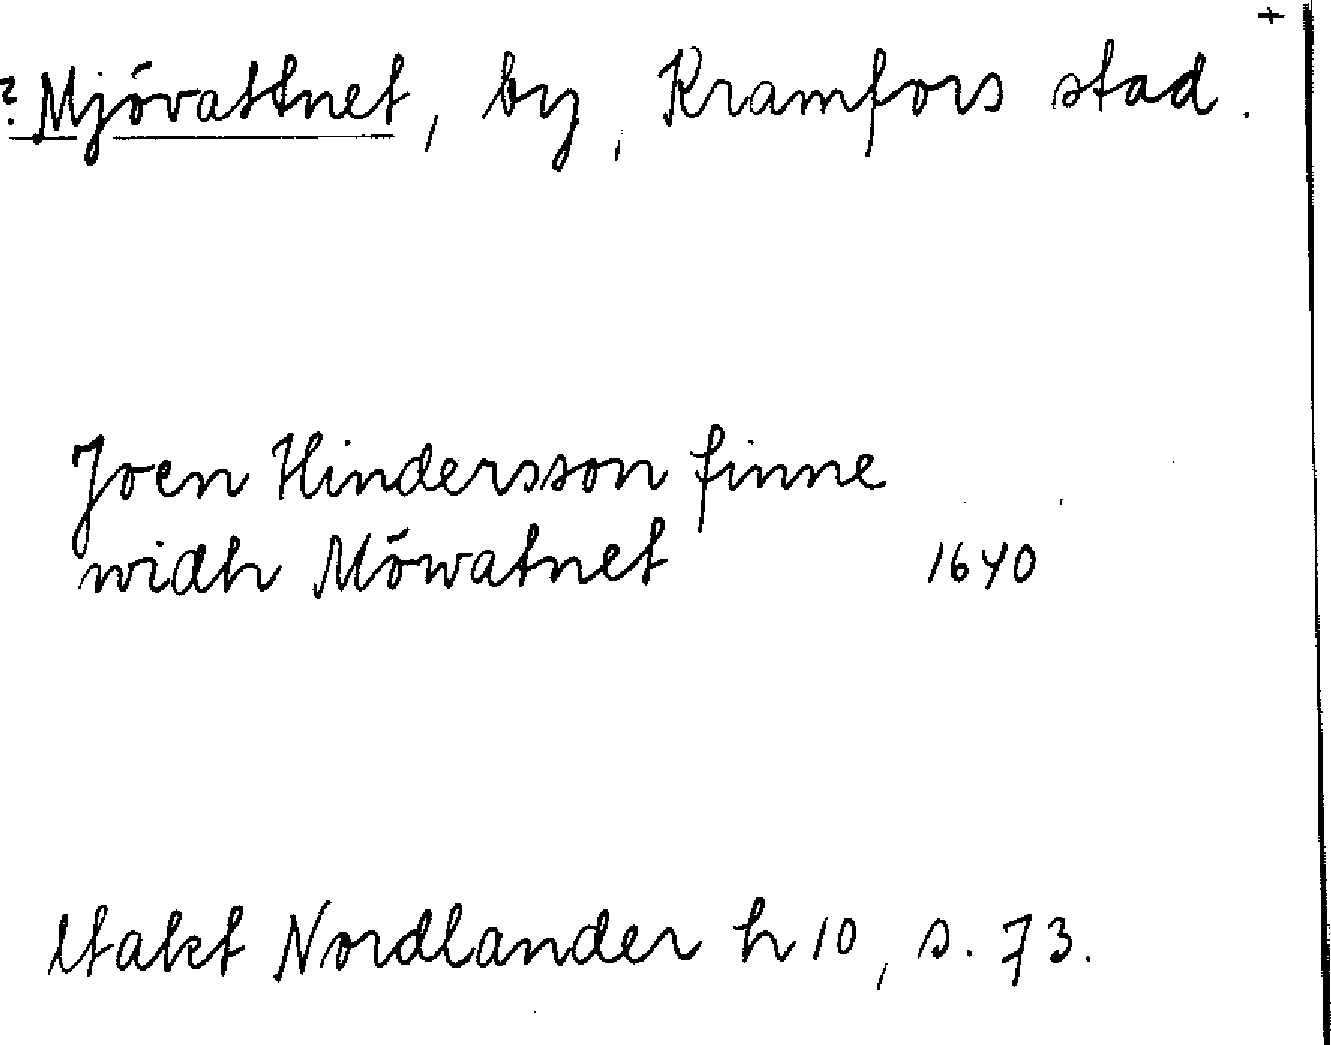 +
? Mjövattnet, by, Kramfors stad.
Joen Hindersson finne
widh Möwatnet 1640
Utakt Nordlander h 10, s. 73.